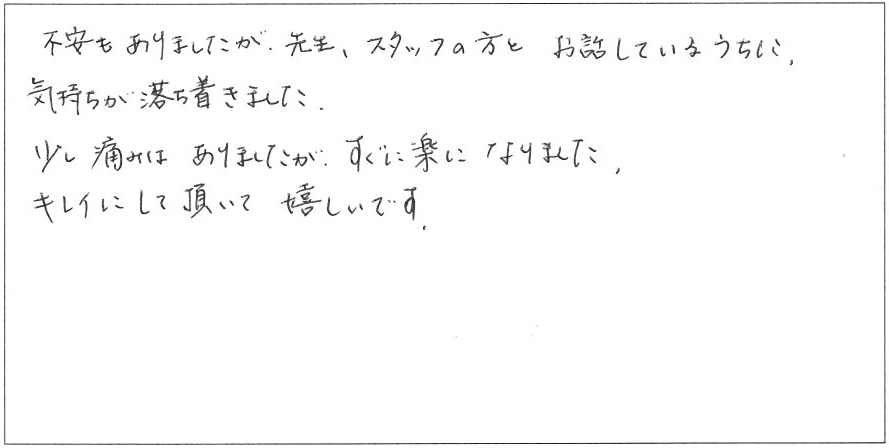 不安もありましたが、先生、スタッフの方と お話しているうちに、
気持ちが落ち着きました。
少し痛みは ありましたが、すぐに楽に なりました。
キレイにして頂いて 嬉しいです。